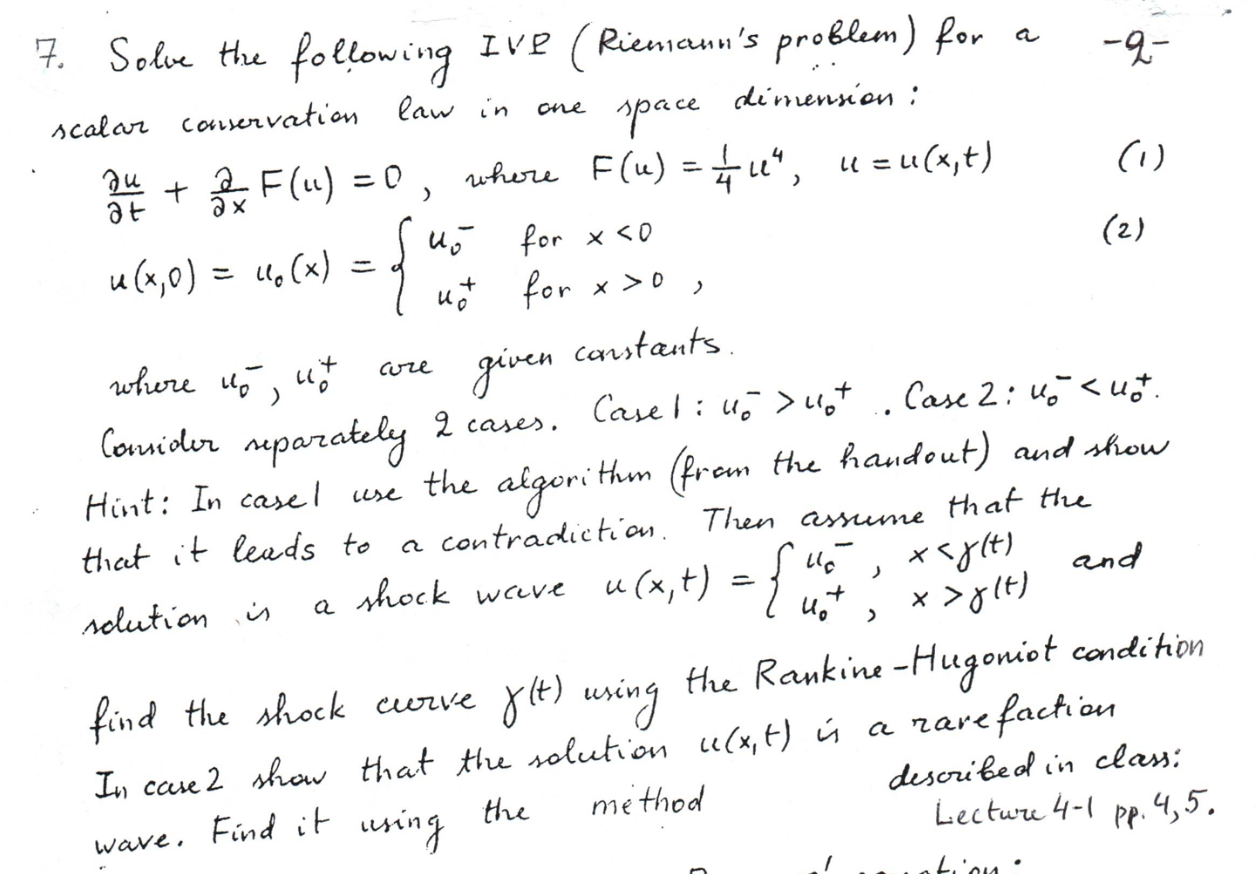 7. Solve the following IVP (Riemann's problem) for a -2-
scalar conservation law in one space dimension:
∂u/∂t + ∂/∂x F(u) = 0, where F(u) = 1/4 u⁴, u = u(x,t) (1)
u(x,0) = u₀(x) = { u₀⁻ for x < 0 (2)
u₀⁺ for x > 0 ,
where u₀⁻, u₀⁺ are given constants.
Consider separately 2 cases. Case 1: u₀⁻ > u₀⁺. Case 2: u₀⁻ < u₀⁺.
Hint: In case 1 use the algorithm (from the handout) and show
that it leads to a contradiction. Then assume that the
solution is a shock wave u(x,t) = { u₀⁻, x < γ(t) and
u₀⁺, x > γ(t)
find the shock curve γ(t) using the Rankine-Hugoniot condition
In case 2 show that the solution u(x,t) is a rarefaction
wave. Find it using the method described in class:
Lecture 4-1 pp. 4,5.